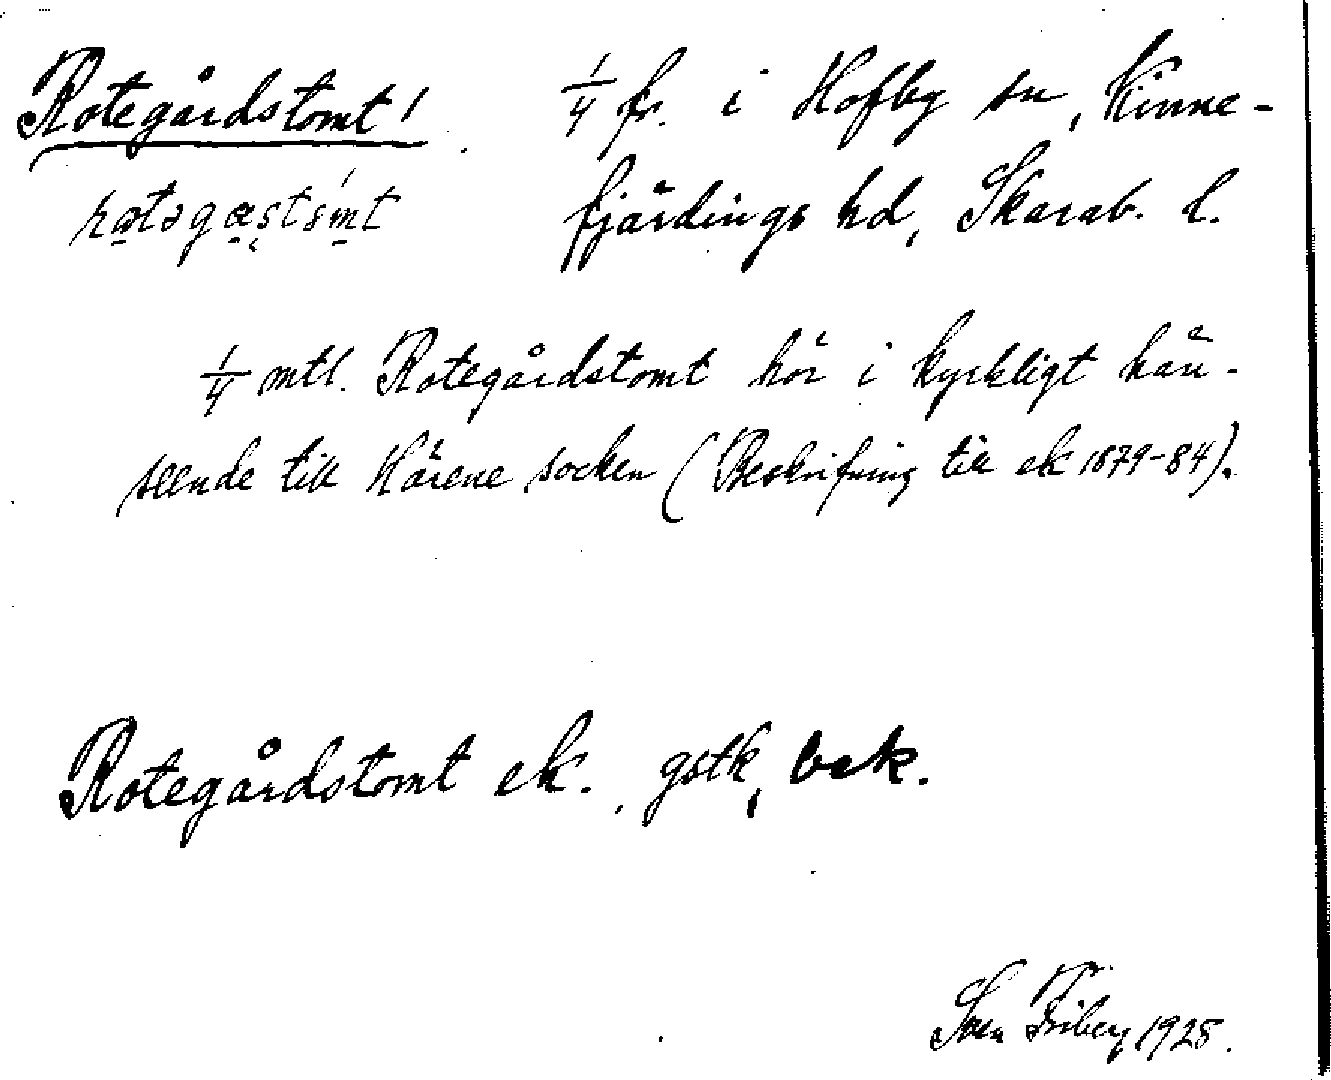 Rotegårdstomt! 1/4 fr. i Hofby sn, Kinne-
fjärdings hd, Skarab. l.
1/4 mtl. Rotegårdstomt hör i kyrkligt hän-
seende till Härene socken (Beskrifning till ek 1879-84).
Rotegårdstomt ek., gstk, bek.
Sven Friberg 1925.